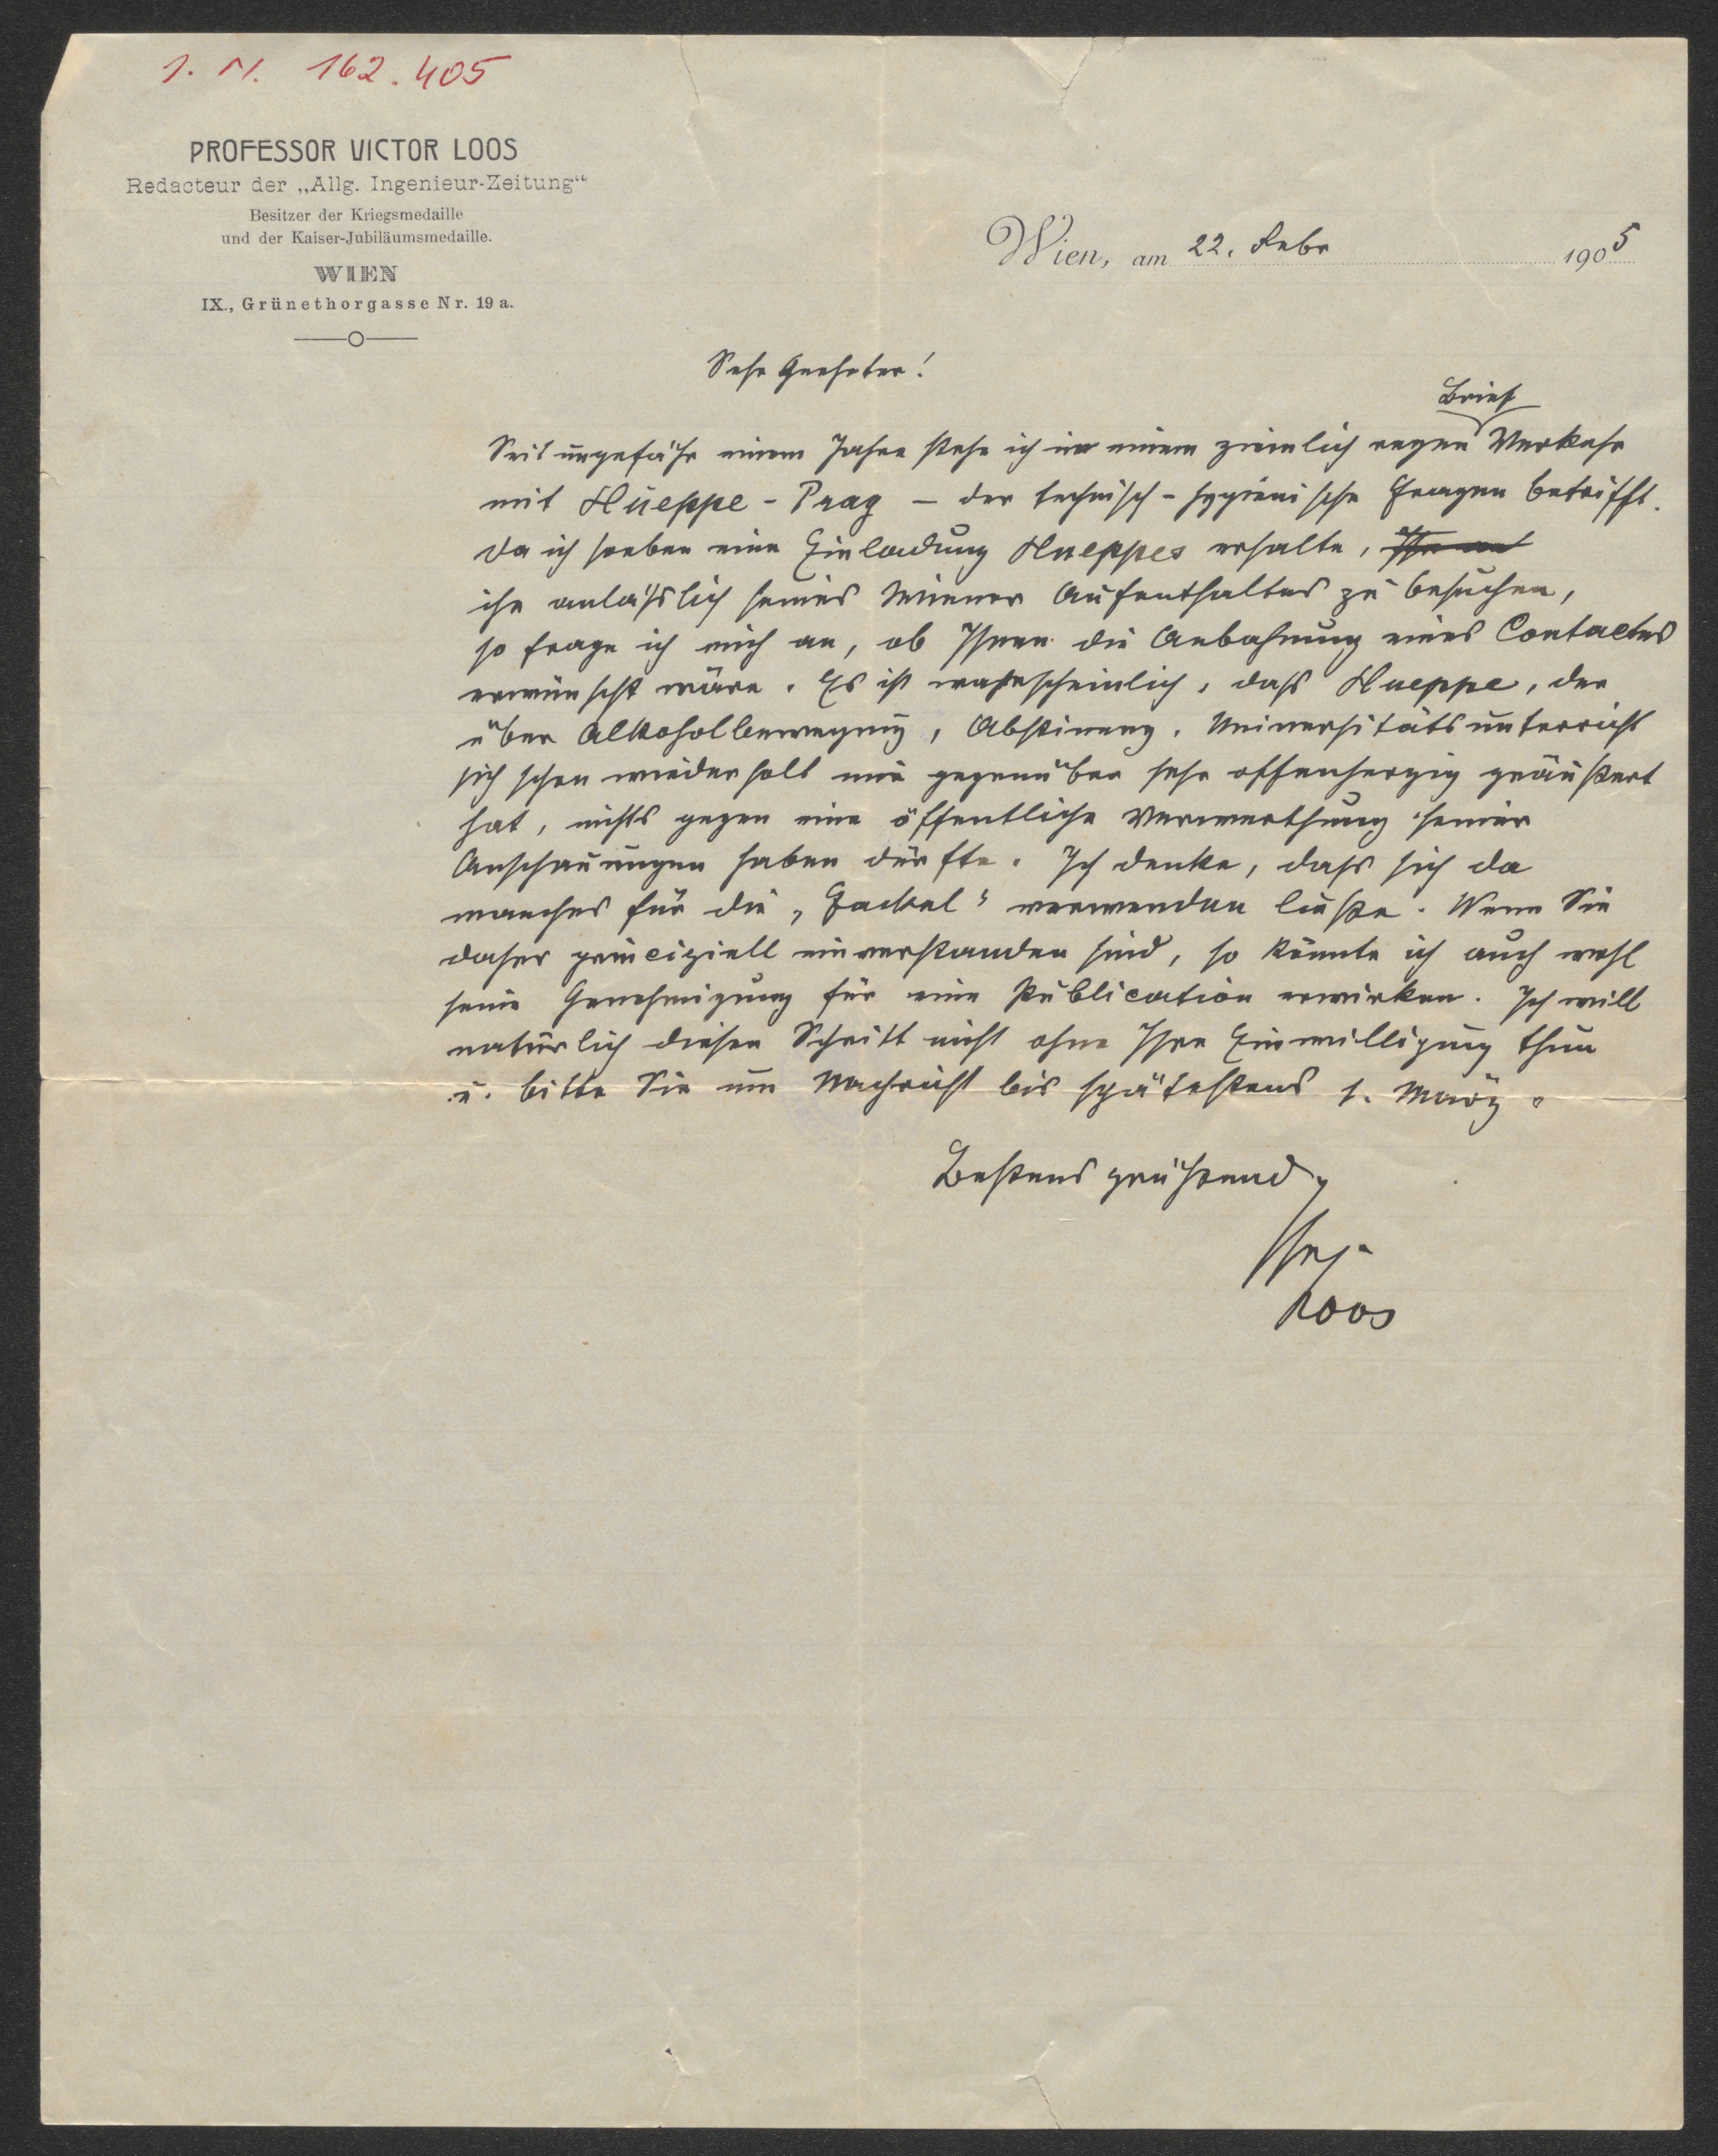 I. N. 162.405
PROFESSOR VICTOR LOOS
Redacteur der „Allg. Ingenieur-Zeitung“
Besitzer der Kriegsmedaille
und der Kaiser-Jubiläumsmedaille.
WIEN
IX., Grünethorgasse Nr. 19 a.
Wien, am 22. Febr 1905
Sehr Geehrter!
Brief
Seit ungefähr einem Jahre stehe ich in einem ziemlich regen Verkehr
mit Hüeppe - Prag - der technisch-hygienische Fragen betrifft.
Da ich soeben eine Einladung Hueppes erhalte,
ihn anläßlich seines Wiener Aufenthaltes zu besuchen,
so frage ich mich an, ob Ihnen die Anbahnung eines Contactes
erwünscht wäre. Es ist wahrscheinlich, dass Hueppe, der
über Alkoholbewegung, Abstinenz, Universitätsunterricht
sich schon wiederholt mir gegenüber sehr offenherzig geäußert
hat, nichts gegen eine öffentliche Verwerthung seiner
Anschauungen haben dürfte. Ich denke, dass sich da
manches für die „Fackel“ verwenden ließe. Wenn Sie
daher principiell einverstanden sind, so könnte ich auch wohl
seine Genehmigung für eine Publication erwirken. Ich will
natürlich diesen Schritt nicht ohne Ihre Einwilligung thun
u. bitte Sie um Nachricht bis spätestens 1. März.
Bestens grüßend,
Ihr
Loos